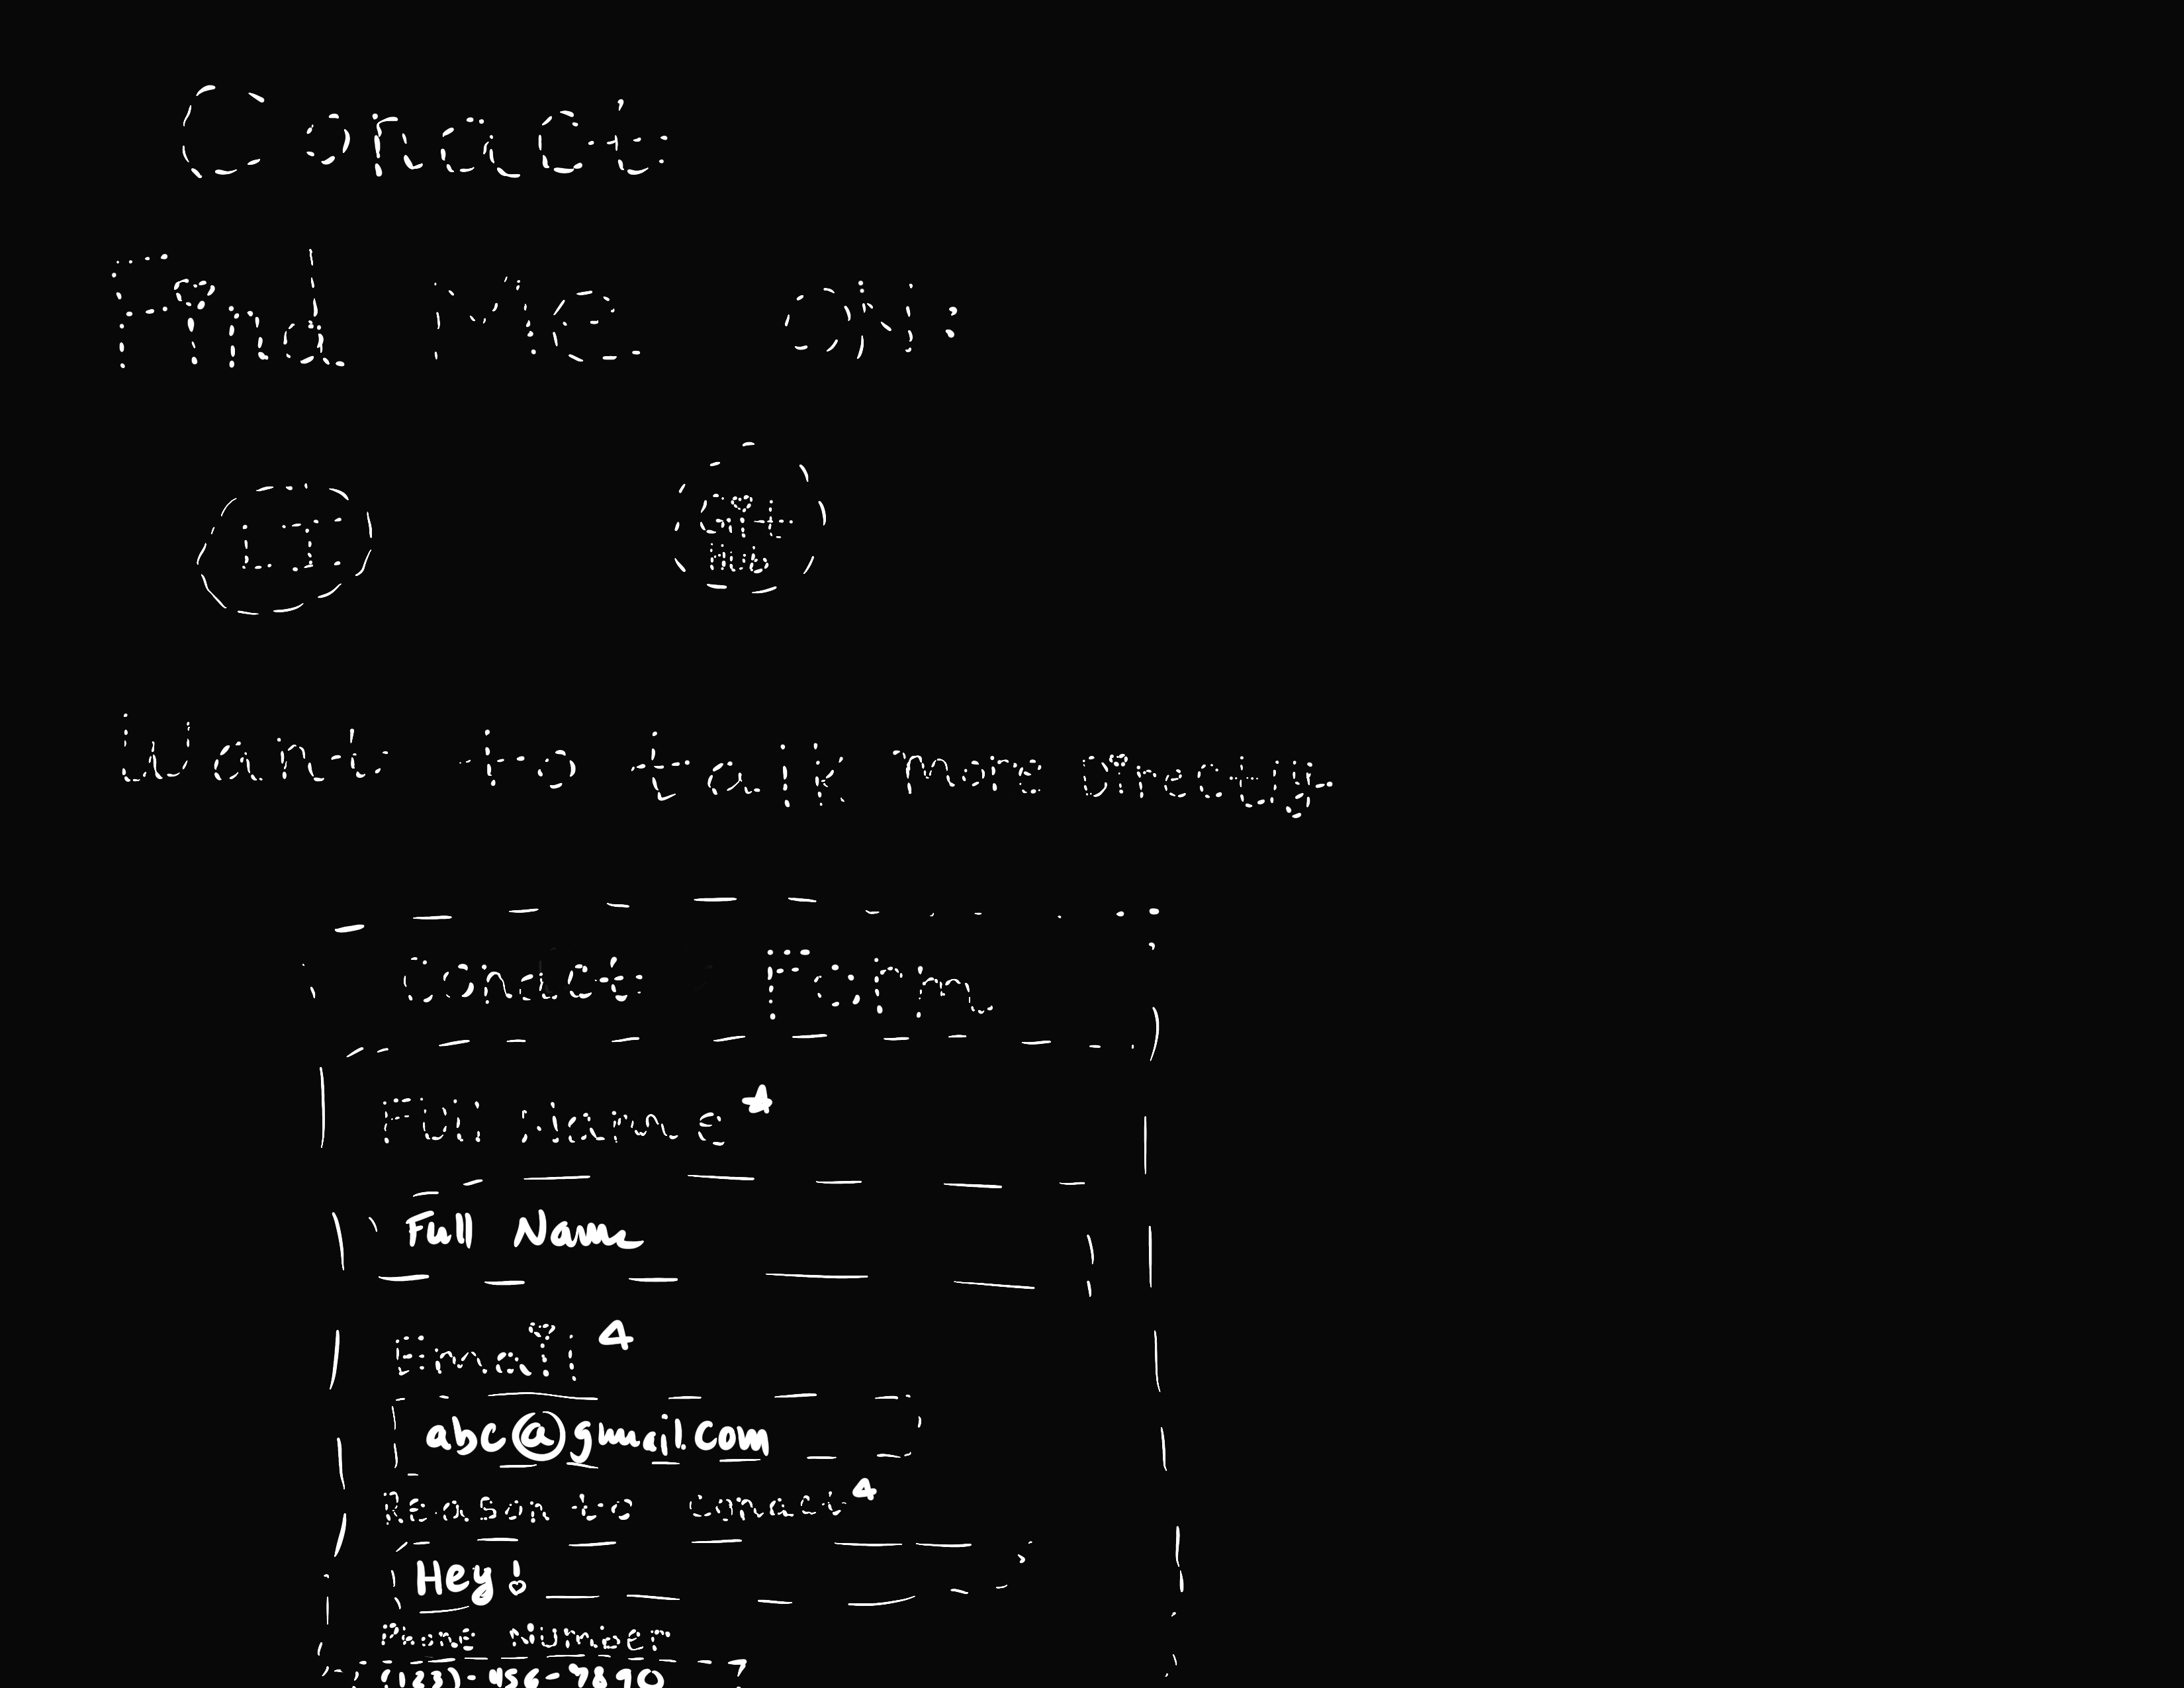 Contact
Find Me ON:
LI Git
Hub
Want to talk more directly
Contact Form
Full Name*
Full Name
Email *
abc@gmail.com
Reason to contact *
Hey!
Phone Number
(123)-456-7890